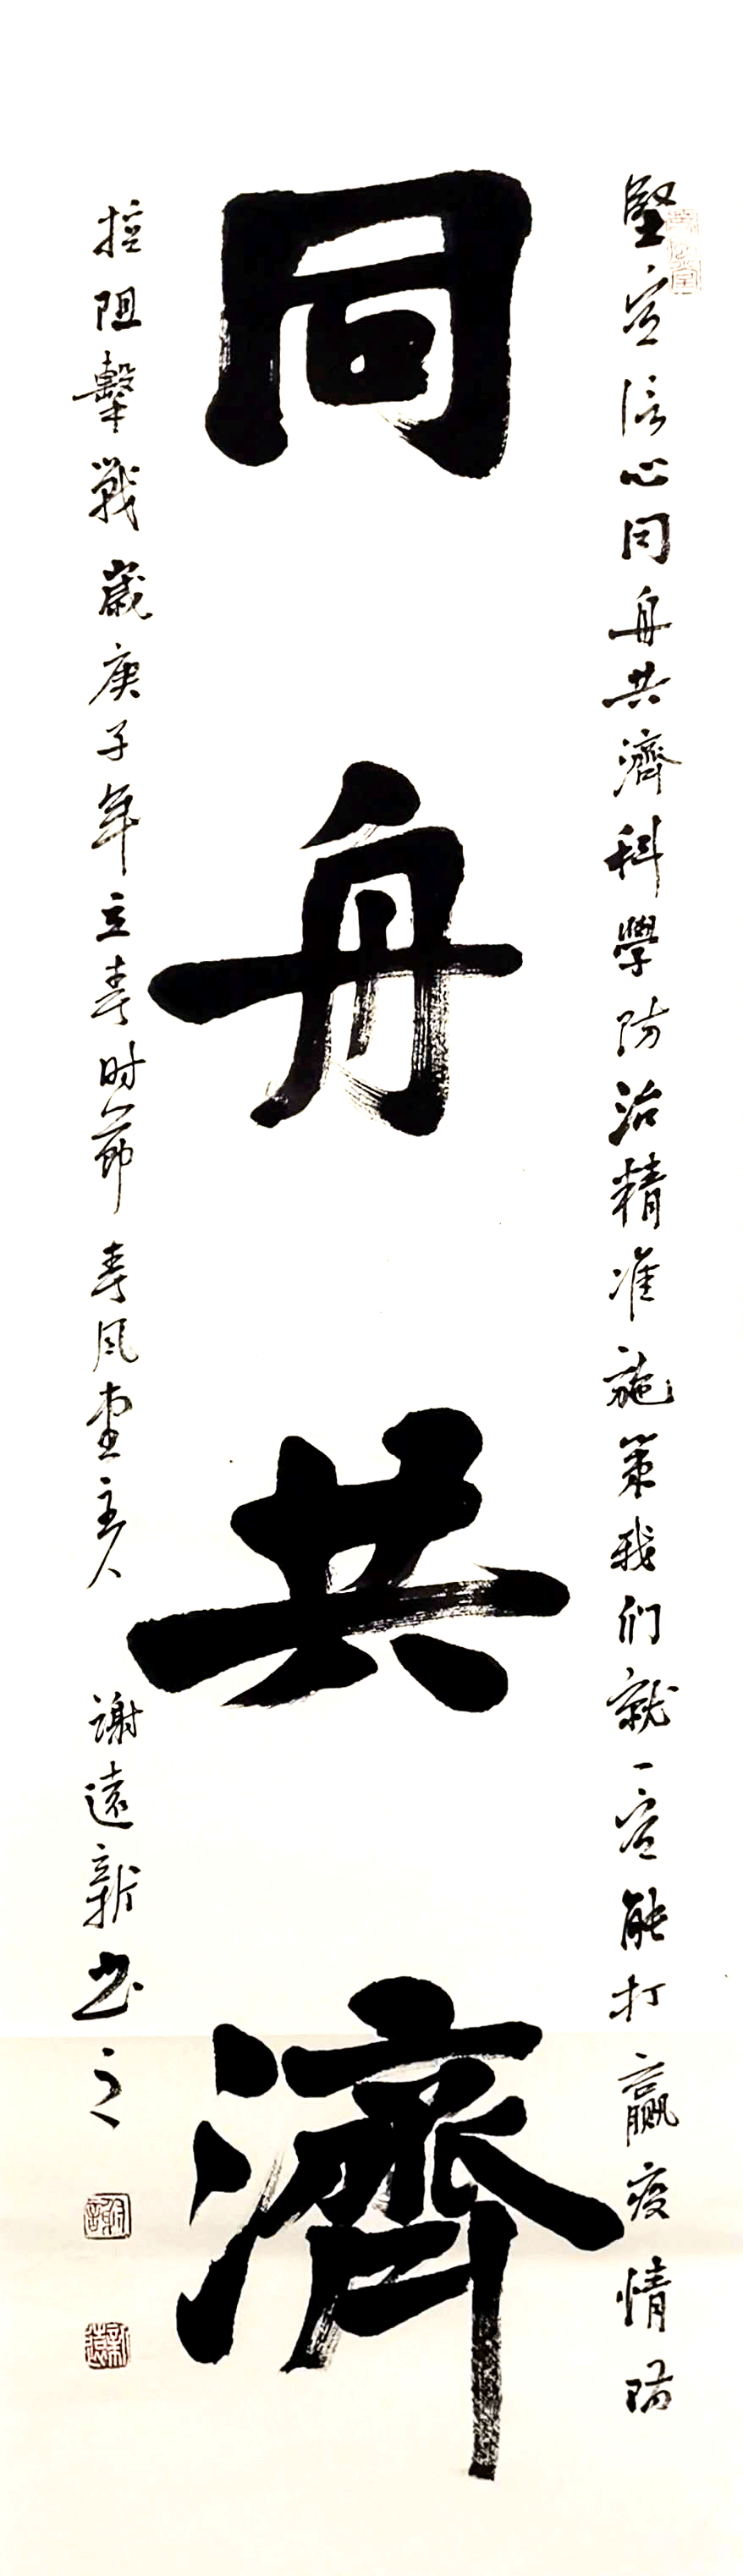 堅定信心同舟共濟科學防治精准施策我们就一定能打赢疫情防
同舟共濟
控阻擊戰歲庚子年立春时節春风堂主人 謝遠新书之